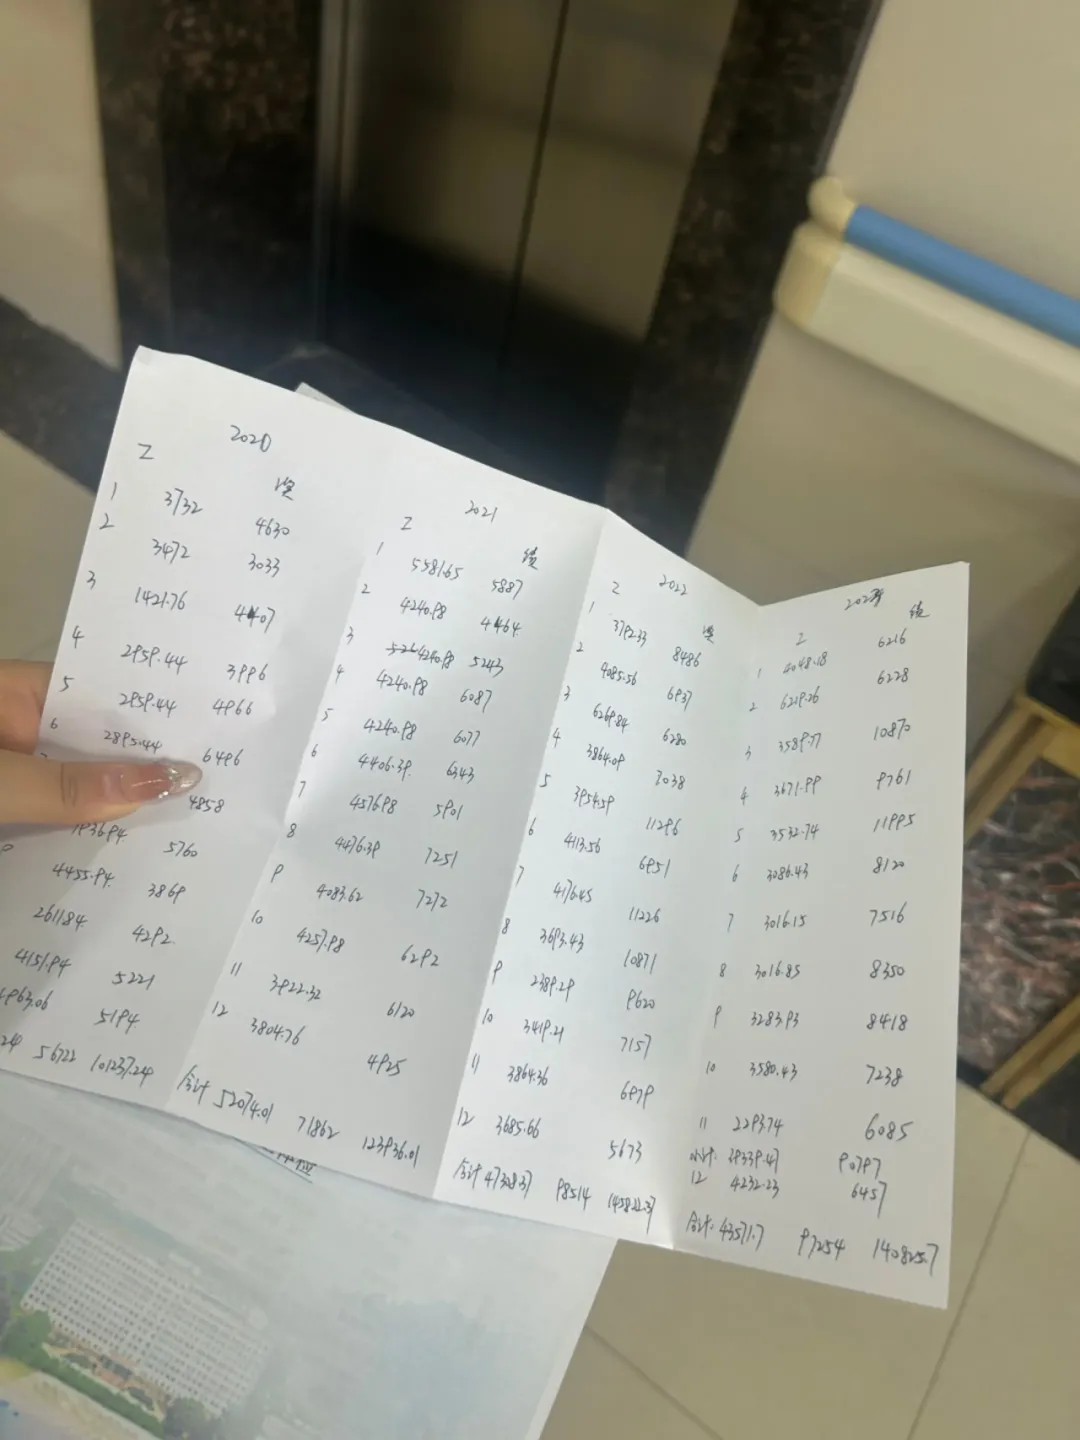 2020
Z 绩
1 3732 4630
2 3472 3033
3 1421.76 4407
4 2959.44 3996
5 2859.44 4966
6 2895.44 6496
4858
1936.94 5760
9 4455.94 3869
2611.84 4292
4151.94 5221
4963.06 5194
24 56722 101237.24
2021
Z 绩
1 5581.65 5887
2 4240.98 4464
3 4240.98 5243
4 4240.98 6087
5 4240.98 6077
6 4406.39 6343
7 4576.98 5901
8 4476.39 7251
9 4083.62 7272
10 4257.98 6292
11 3922.32 6120
12 3804.76 4925
合计 52074.01 71862 123936.01
2022
Z 绩
1 3792.33 8486
2 4085.56 6937
3 6269.84 6280
4 3864.09 7038
5 3954.59 11296
6 4113.56 6951
7 4176.45 11226
8 3693.43 10871
9 2389.29 9620
10 3419.21 7157
11 3864.36 6979
12 3685.66 5673
合计 47308.37 98514 145822.37
2023
Z 绩
1 4048.18 6216
2 6219.26 6228
3 3589.77 10870
4 3671.99 9761
5 3532.74 11995
6 3086.43 8120
7 3016.15 7516
8 3016.85 8350
9 3283.93 8418
10 3580.43 7238
11 2293.74 6085
小计: 39339.47 90797
12 4232.23 6457
合计: 43571.7 97254 140825.7